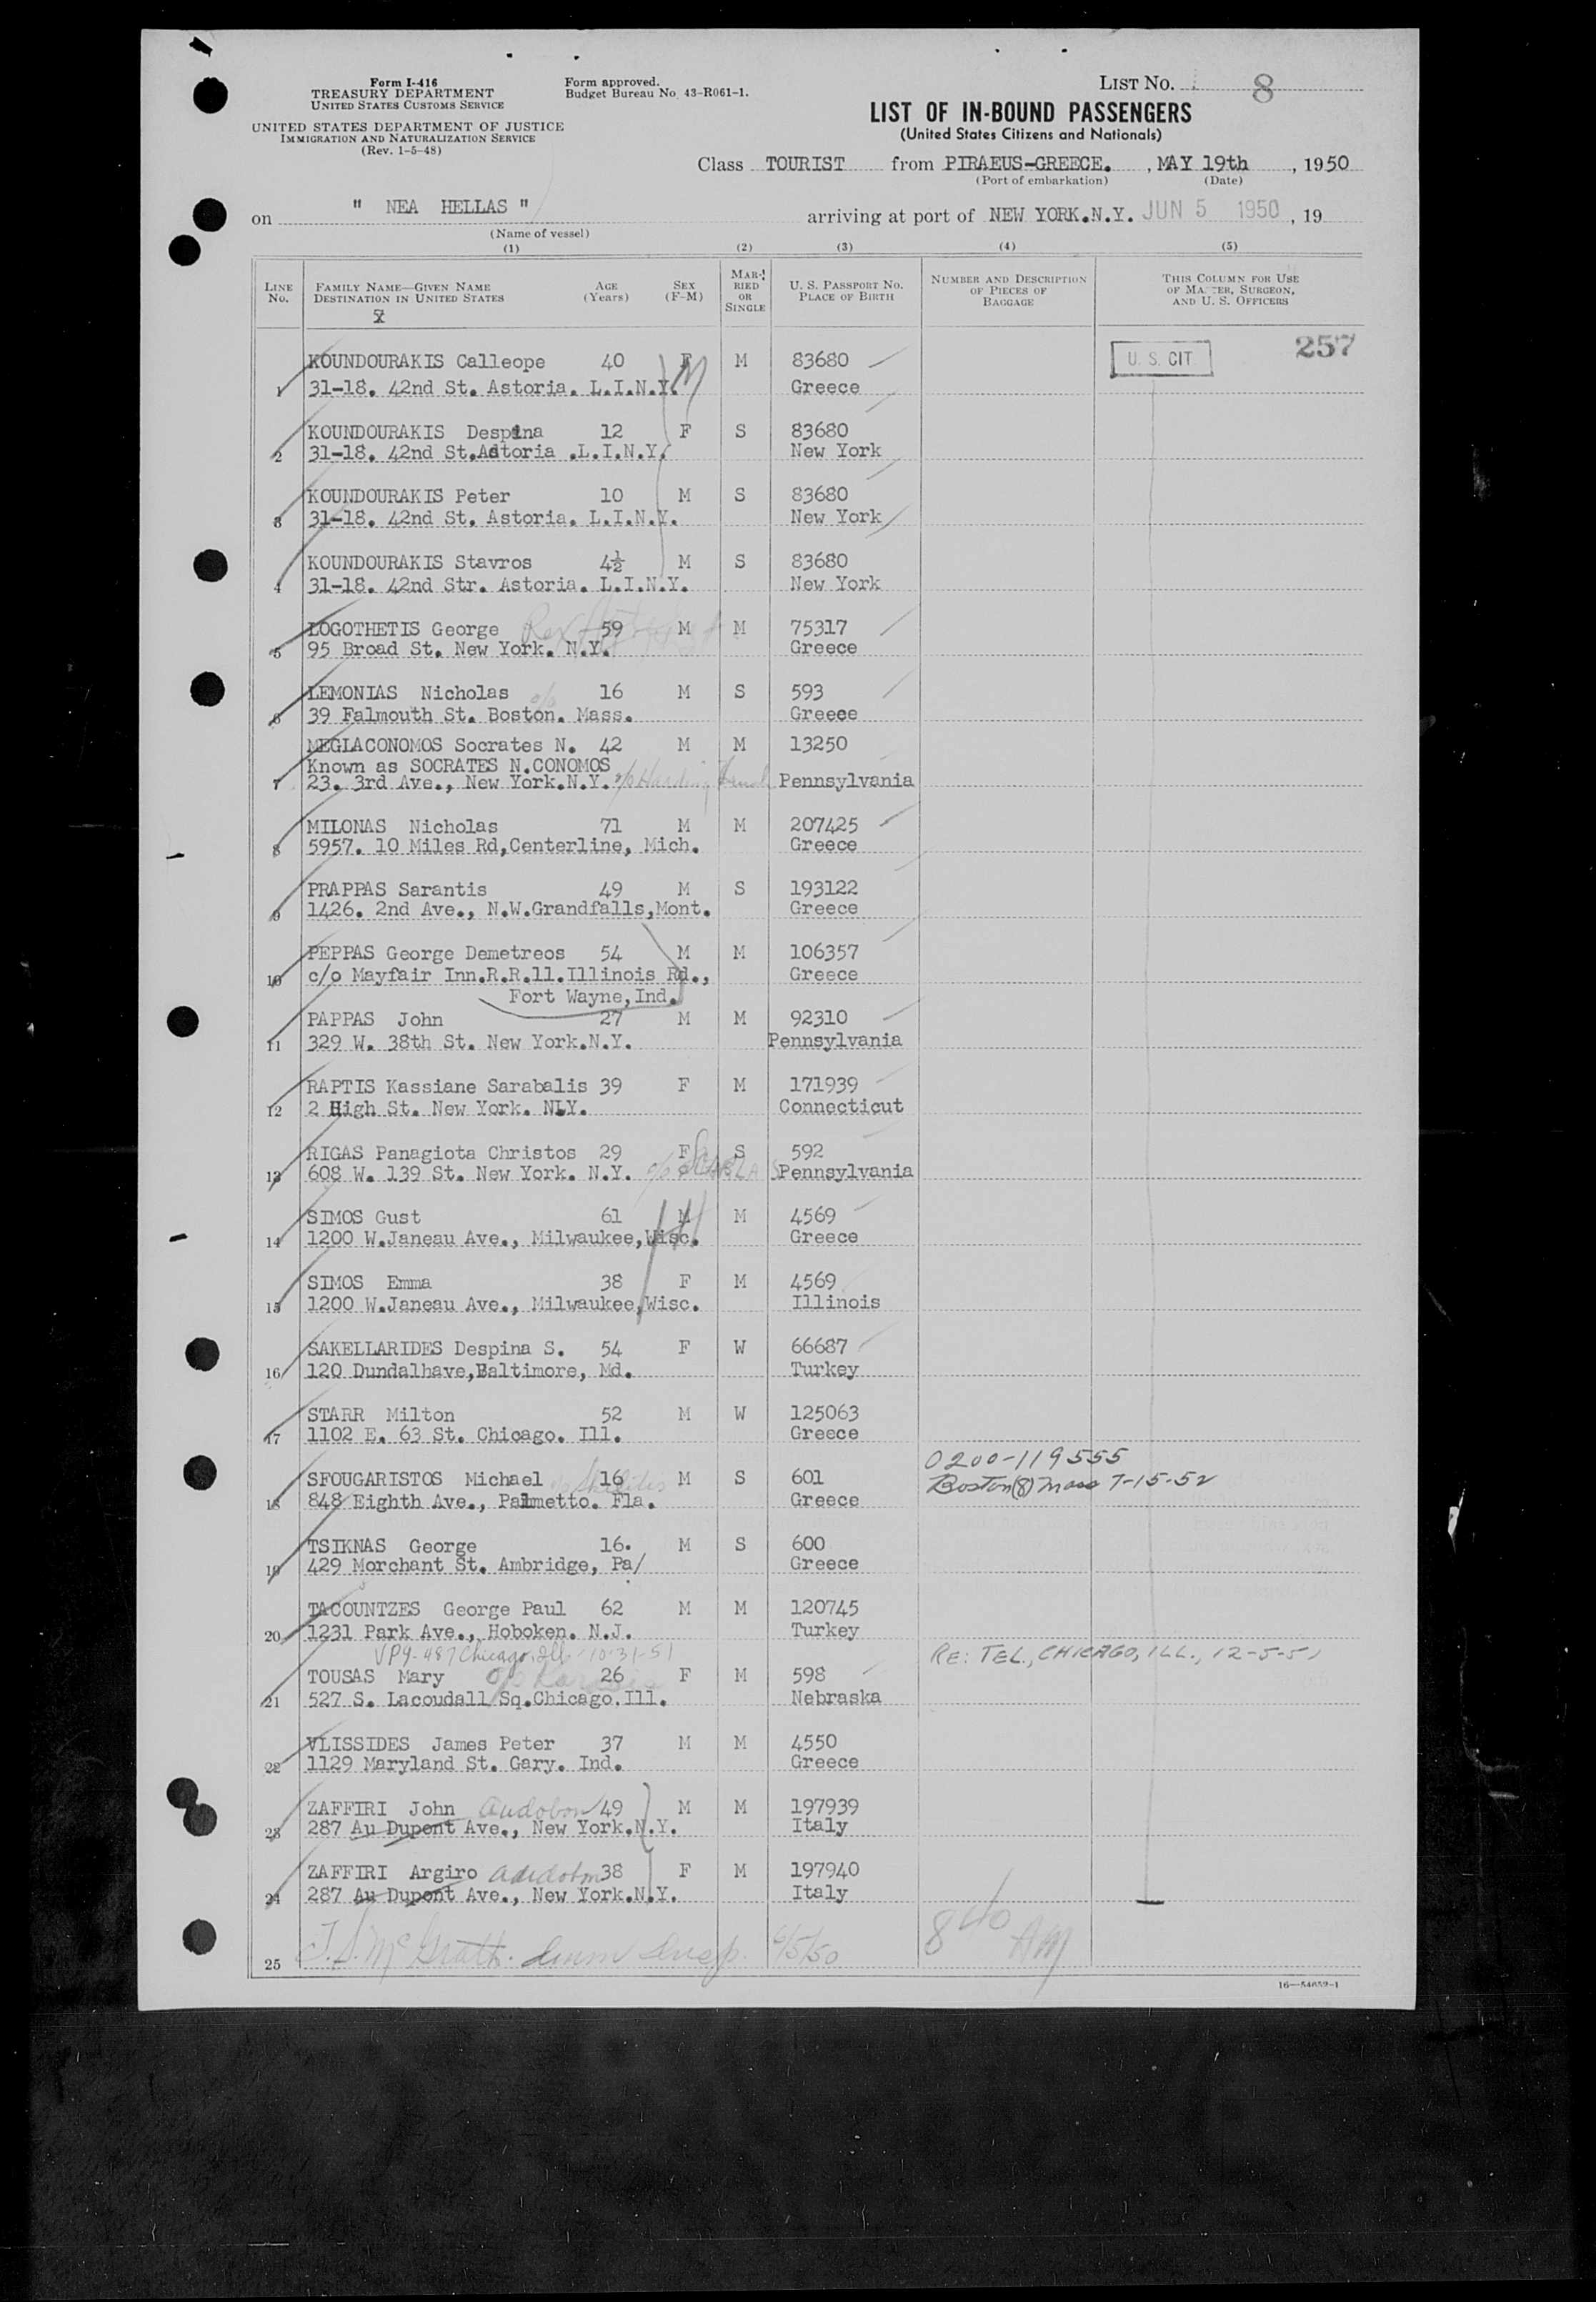 Form I-416
TREASURY DEPARTMENT
UNITED STATES CUSTOMS SERVICE
UNITED STATES DEPARTMENT OF JUSTICE
IMMIGRATION AND NATURALIZATION SERVICE
(Rev. 1-5-48)
Form approved.
Budget Bureau No. 43-R061-1.
LIST No. 8
LIST OF IN-BOUND PASSENGERS
(United States Citizens and Nationals)
Class TOURIST from PIRAEUS-GREECE. , MAY 19th , 1950
(Port of embarkation) (Date)
on " NEA HELLAS " arriving at port of NEW YORK.N.Y. JUN 5 1950 , 19
(Name of vessel)
(1) (2) (3) (4) (5)
LINE No. FAMILY NAME—GIVEN NAME DESTINATION IN UNITED STATES AGE (Years) SEX (F-M) MARRIED OR SINGLE U. S. PASSPORT No. PLACE OF BIRTH NUMBER AND DESCRIPTION OF PIECES OF BAGGAGE THIS COLUMN FOR USE OF MASTER, SURGEON, AND U. S. OFFICERS
257
U. S. CIT
KOUNDOURAKIS Calleope 40 F M 83680
1 31-18. 42nd St. Astoria. L.I.N.Y. Greece
KOUNDOURAKIS Despina 12 F S 83680
2 31-18. 42nd St.Astoria .L.I.N.Y. New York
KOUNDOURAKIS Peter 10 M S 83680
3 31-18. 42nd St. Astoria. L.I.N.Y. New York
KOUNDOURAKIS Stavros 4½ M S 83680
4 31-18. 42nd Str. Astoria. L.I.N.Y. New York
LOGOTHETIS George 59 M M 75317
5 95 Broad St. New York. N.Y. Greece
LEMONIAS Nicholas 16 M S 593
6 39 Falmouth St. Boston. Mass. Greece
MEGLACONOMOS Socrates N. 42 M M 13250
Known as SOCRATES N.CONOMOS
7 23. 3rd Ave., New York.N.Y. c/o Harding Pennsylvania
MILONAS Nicholas 71 M M 207425
8 5957. 10 Miles Rd,Centerline, Mich. Greece
PRAPPAS Sarantis 49 M S 193122
9 1426. 2nd Ave., N.W.Grandfalls,Mont. Greece
PEPPAS George Demetreos 54 M M 106357
10 c/o Mayfair Inn.R.R.11.Illinois Rd., Greece
Fort Wayne,Ind.
PAPPAS John 27 M M 92310
11 329 W. 38th St. New York.N.Y. Pennsylvania
RAPTIS Kassiane Sarabalis 39 F M 171939
12 2 High St. New York. N.Y. Connecticut
RIGAS Panagiota Christos 29 F S 592
13 608 W. 139 St. New York. N.Y. c/o Pennsylvania
SIMOS Gust 61 M M 4569
14 1200 W.Janeau Ave., Milwaukee,Wisc. Greece
SIMOS Emma 38 F M 4569
15 1200 W.Janeau Ave., Milwaukee,Wisc. Illinois
SAKELLARIDES Despina S. 54 F W 66687
16 120 Dundalhave,Baltimore, Md. Turkey
STARR Milton 52 M W 125063
17 1102 E. 63 St. Chicago. Ill. Greece
0200-119555
SFOUGARISTOS Michael 16 M S 601 Boston (8) Mass 7-15-52
18 848 Eighth Ave., Palmetto. Fla. Greece
TSIKNAS George 16. M S 600
19 429 Morchant St. Ambridge, Pa/ Greece
TACOUNTZES George Paul 62 M M 120745
20 1231 Park Ave., Hoboken. N.J. Turkey
VP9-487 Chicago, Ill 10-31-51 RE: TEL., CHICAGO, ILL., 12-5-51
TOUSAS Mary 26 F M 598
21 527 S. Lacoudall Sq.Chicago.Ill. Nebraska
VLISSIDES James Peter 37 M M 4550
22 1129 Maryland St. Gary. Ind. Greece
ZAFFIRI John Audobon 49 M M 197939
23 287 Au Dupont Ave., New York.N.Y. Italy
ZAFFIRI Argiro Audobon 38 F M 197940
24 287 Au Dupont Ave., New York.N.Y. Italy
25 T.S. McGrath. Imm Insp. 6/5/50 840 AM
16—54652-1